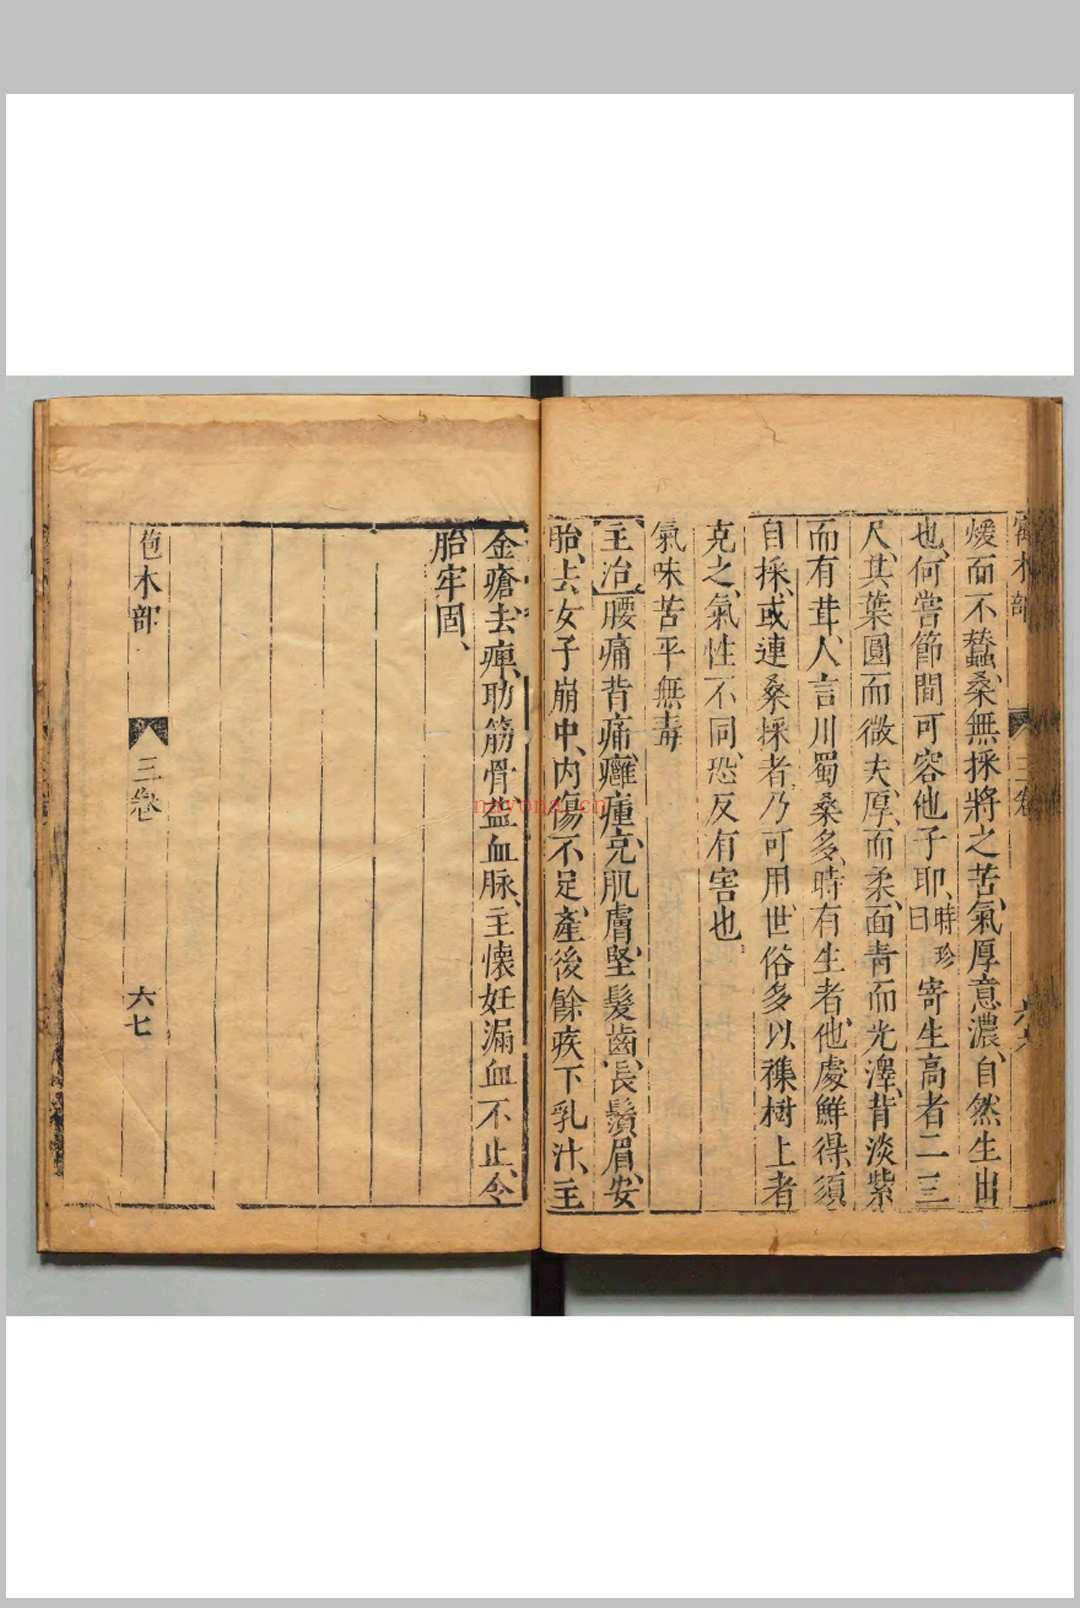 寓木部 三卷 六六
煖而不蠶桑無採將之苦氣厚意濃自然生出
也何嘗節間可容他子耶時珍曰寄生高者二三
尺其葉圓而微尖厚而柔面青而光澤背淡紫
而有茸人言川蜀桑多時有生者他處鮮得須
自採或連桑採者乃可用世俗多以襍樹上者
克之氣性不同恐反有害也
氣味苦平無毒
主治腰痛背痛癰瘇充肌膚堅髮齒長鬚眉安
胎去女子崩中內傷不足產後餘疾下乳汁主
金瘡去痺助筋骨益血脉主懷妊漏血不止令
胎牢固
苞木部 三卷 六七
nayona.cn